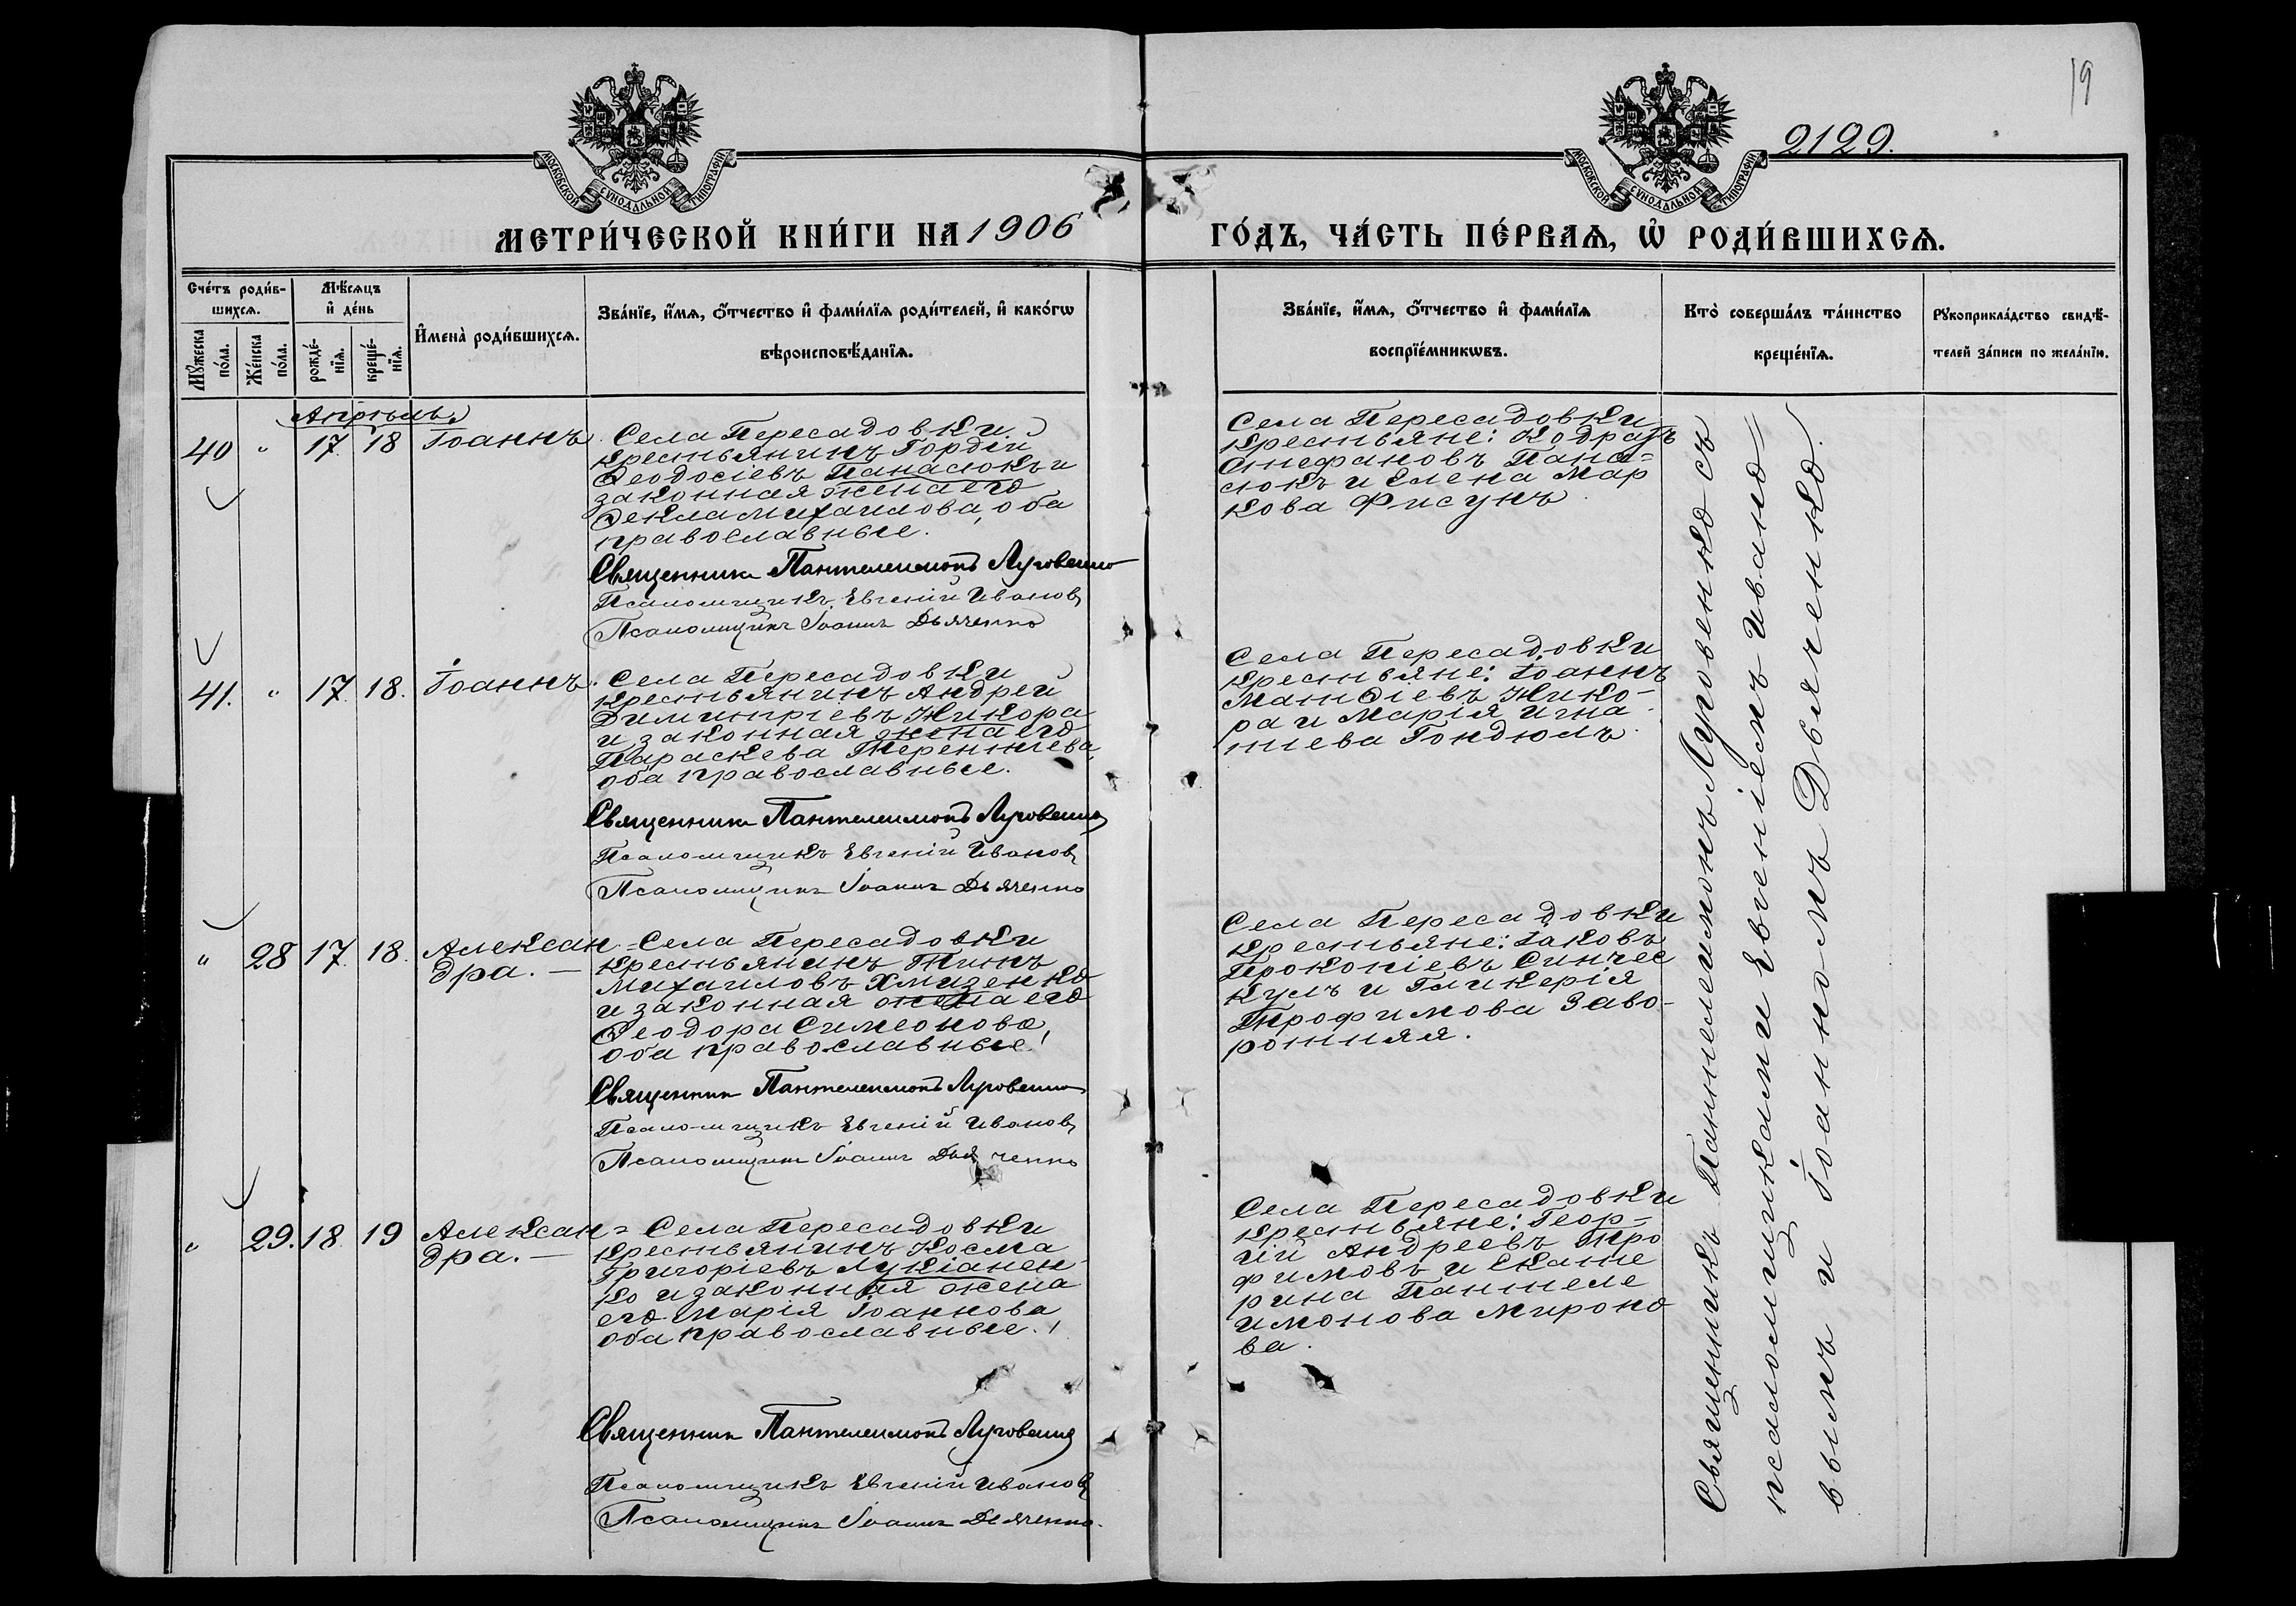 19
2129.
МОСКОВСКОЙ СѴНОДАЛЬНОЙ ТИПОГРАФІИ
МОСКОВСКОЙ СѴНОДАЛЬНОЙ ТИПОГРАФІИ
МЕТРИ́ЧЕСКОЙ КНИ́ГИ НА 1906
ГО́ДЪ, ЧА́СТЬ ПЕ́РВАѦ, Ѡ҆ РОДИ́ВШИХСѦ.
Сче́тъ роди́в-
шихсѧ.
Мꙋ́жеска по́ла.
Же́нска по́ла.
Мѣ́сѧцъ
и҆ де́нь
рожде́-
нїѧ.
креще́-
нїѧ.
И҆мена̀ роди́вшихсѧ.
Зва́нїе, и҆́мѧ, ѻ҆́тчество и҆ фами́лїѧ роди́телей, и҆ како́гѡ
вѣроисповѣ́данїѧ.
Зва́нїе, и҆́мѧ, ѻ҆́тчество и҆ фами́лїѧ
воспрїе́мникѡвъ.
Кто̀ соверша́лъ та́инство
креще́нїѧ.
Рꙋкоприкла́дство свидѣ́-
телей за́писи по жела́нїю.
Апрѣль.
40 " 17. 18 Іоаннъ.
Села Пересадовки
крестьянинъ Гордій
Ѳеодосіевъ Панасюкъ и
законная жена его
Ѳекла Михаилова, оба
православные.
Священникъ Пантелеимонъ Луговенко
Псаломщикъ Евгеній Ивановъ
Псаломщикъ Іоаннъ Дьяченко
Села Пересадовки
крестьяне: Кодратъ
Стефановъ Пана=
сюкъ и Елена Мар
кова Фисунъ
41. " 17. 18. Іоаннъ.
Села Пересадовки
крестьянинъ Андрей
Димитріевъ Жикора
и законная жена его
Параскева Терентіева,
оба православные.
Священникъ Пантелеимонъ Луговенко
Псаломщикъ Евгеній Ивановъ
Псаломщикъ Іоаннъ Дьяченко
Села Пересадовки
крестьяне: Іоаннъ
Матѳіевъ Жико-
ра и Марія Игна-
тіева Гондюлъ.
" 28 17. 18. Алексан
дра. —
Села Пересадовки
крестьянинъ Титъ
Михаиловъ Хмизенко
и законная жена его
Ѳеодора Симеонова,
оба православные.
Священникъ Пантелеимонъ Луговенко
Псаломщикъ Евгеній Ивановъ
Псаломщикъ Іоаннъ Дьяченко
Села Пересадовки
крестьяне: Іаковъ
Прокопіевъ Синчес
кулъ и Гликерія
Трофимова Заво-
ротняя.
" 29. 18. 19 Алексан=
дра. —
Села Пересадовки
крестьянинъ Косма
Григоріевъ Лукіанен
ко и законная жена
его Марія Іоаннова
оба православные.
Священникъ Пантелеимонъ Луговенко
Псаломщикъ Евгеній Ивановъ
Псаломщикъ Іоаннъ Дьяченко.
Села Пересадовки
крестьяне: Геор-
гій Андреевъ Тро
фимовъ и Екате
рина Пантеле
имонова Мироно
ва.
Священникъ Пантелеимонъ Луговенко съ
псаломщиками Евгеніемъ Ивано-
вымъ и Іоанномъ Дьяченко.